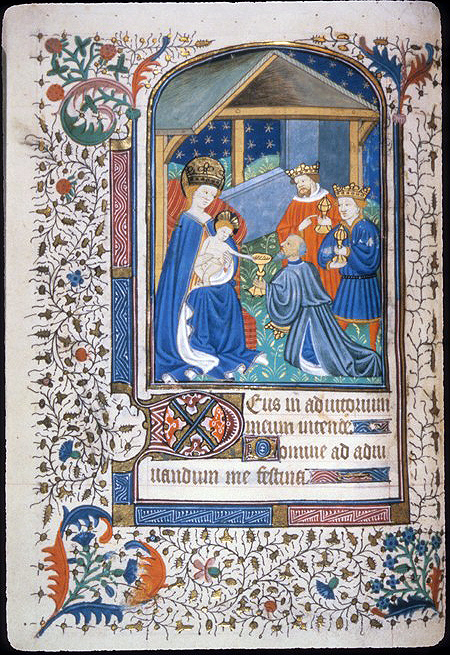 DEus in adiutorium
meum intende
Domine ad adiu
uandum me festina